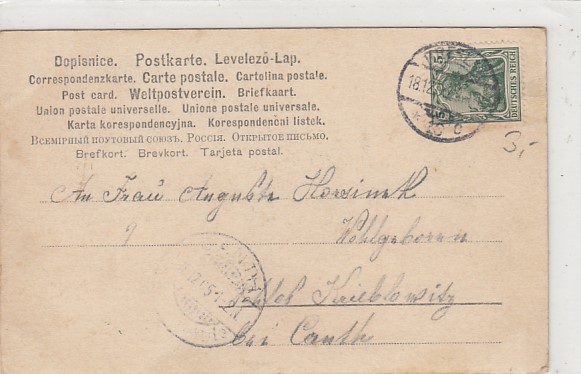 Dopisnice. Postkarte. Levelező-Lap.
Correspondenzkarte. Carte postale. Cartolina postale.
Post card. Weltpostverein. Briefkaart.
Union postale universelle. Unione postale universale.
Karta korespondencyjna. Korespondenčni listek.
Всемірный почтовый союзъ. Россія. Открытое письмо.
Brefkort. Brevkort. Tarjeta postal.
DEUTSCHES REICH
5
18.12.
5,-
An Frau Auguste
Wohlgeboren
Schloß Krieblowitz
bei Canth